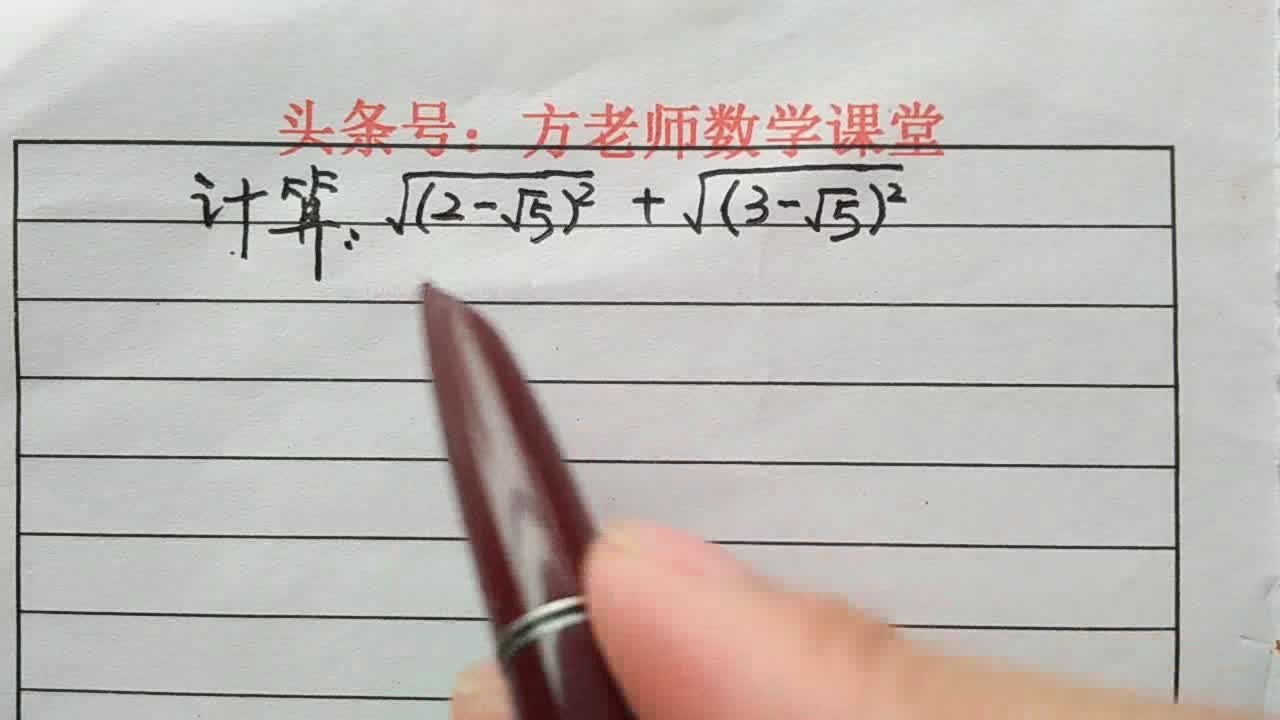 头条号：方老师数学课堂
计算：√(2-√5)² + √(3-√5)²